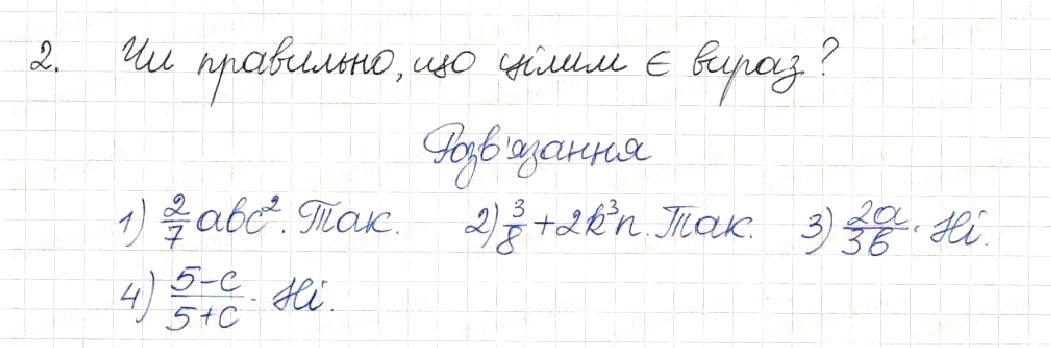 2. Чи правильно, що цілим є вираз?
Розв'язання
1) 2/7 abc². Так. 2) 3/8 + 2k³n. Так. 3) 2a/3b. Ні.
4) 5-c/5+c. Ні.